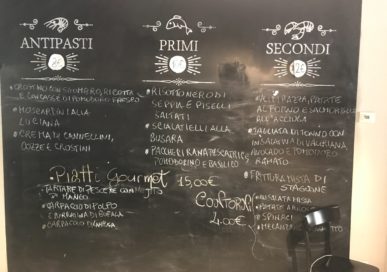 ANTIPASTI
CROSTINO CON SGOMBRO, RICOTTA
E CONCASSE DI POMODORO FRESCO
MOSCARDINI ALLA
LUCIANA
CREMA DI CANNELLINI,
COZZE E CROSTINI
PRIMI
RISOTTO NERO DI
SEPPIA E PISELLI
SALTATI
SCIALATIELLI ALLA
BUSARA
PACCHERI RANA PESCATRICE
POMODORINO E BASILICO
SECONDI
12€
PATATE
AL FORNO E
ALL'ACCIUGA
TAGLIATA DI TONNO CON
INSALATINA DI VALERIANA,
AVOCADO E POMODORO
RAMATO
FRITTURA MISTA DI
STAGIONE
Piatti Gourmet 15,00€
TARTARE DI PESCE CON
MANGO
CARPACCIO DI POLPO
E BURRATINA DI BUFALA
CARPACCIO DI
Contorni
4.00€
INSALATA MISTA
PATATE
SPINACI